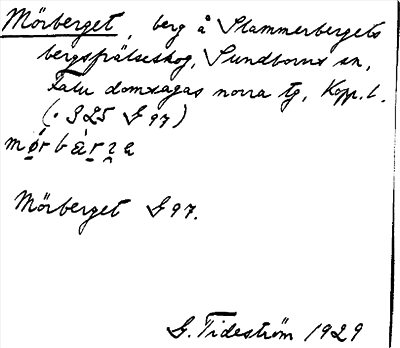 Mörberget, berg å Stammerbergets
bergsfrälseskog, Sundborns sn,
Falu domsagas norra tg, Kopp. l.
(· 325 G 97)
Mörberget G 97.
G. Tideström 1929